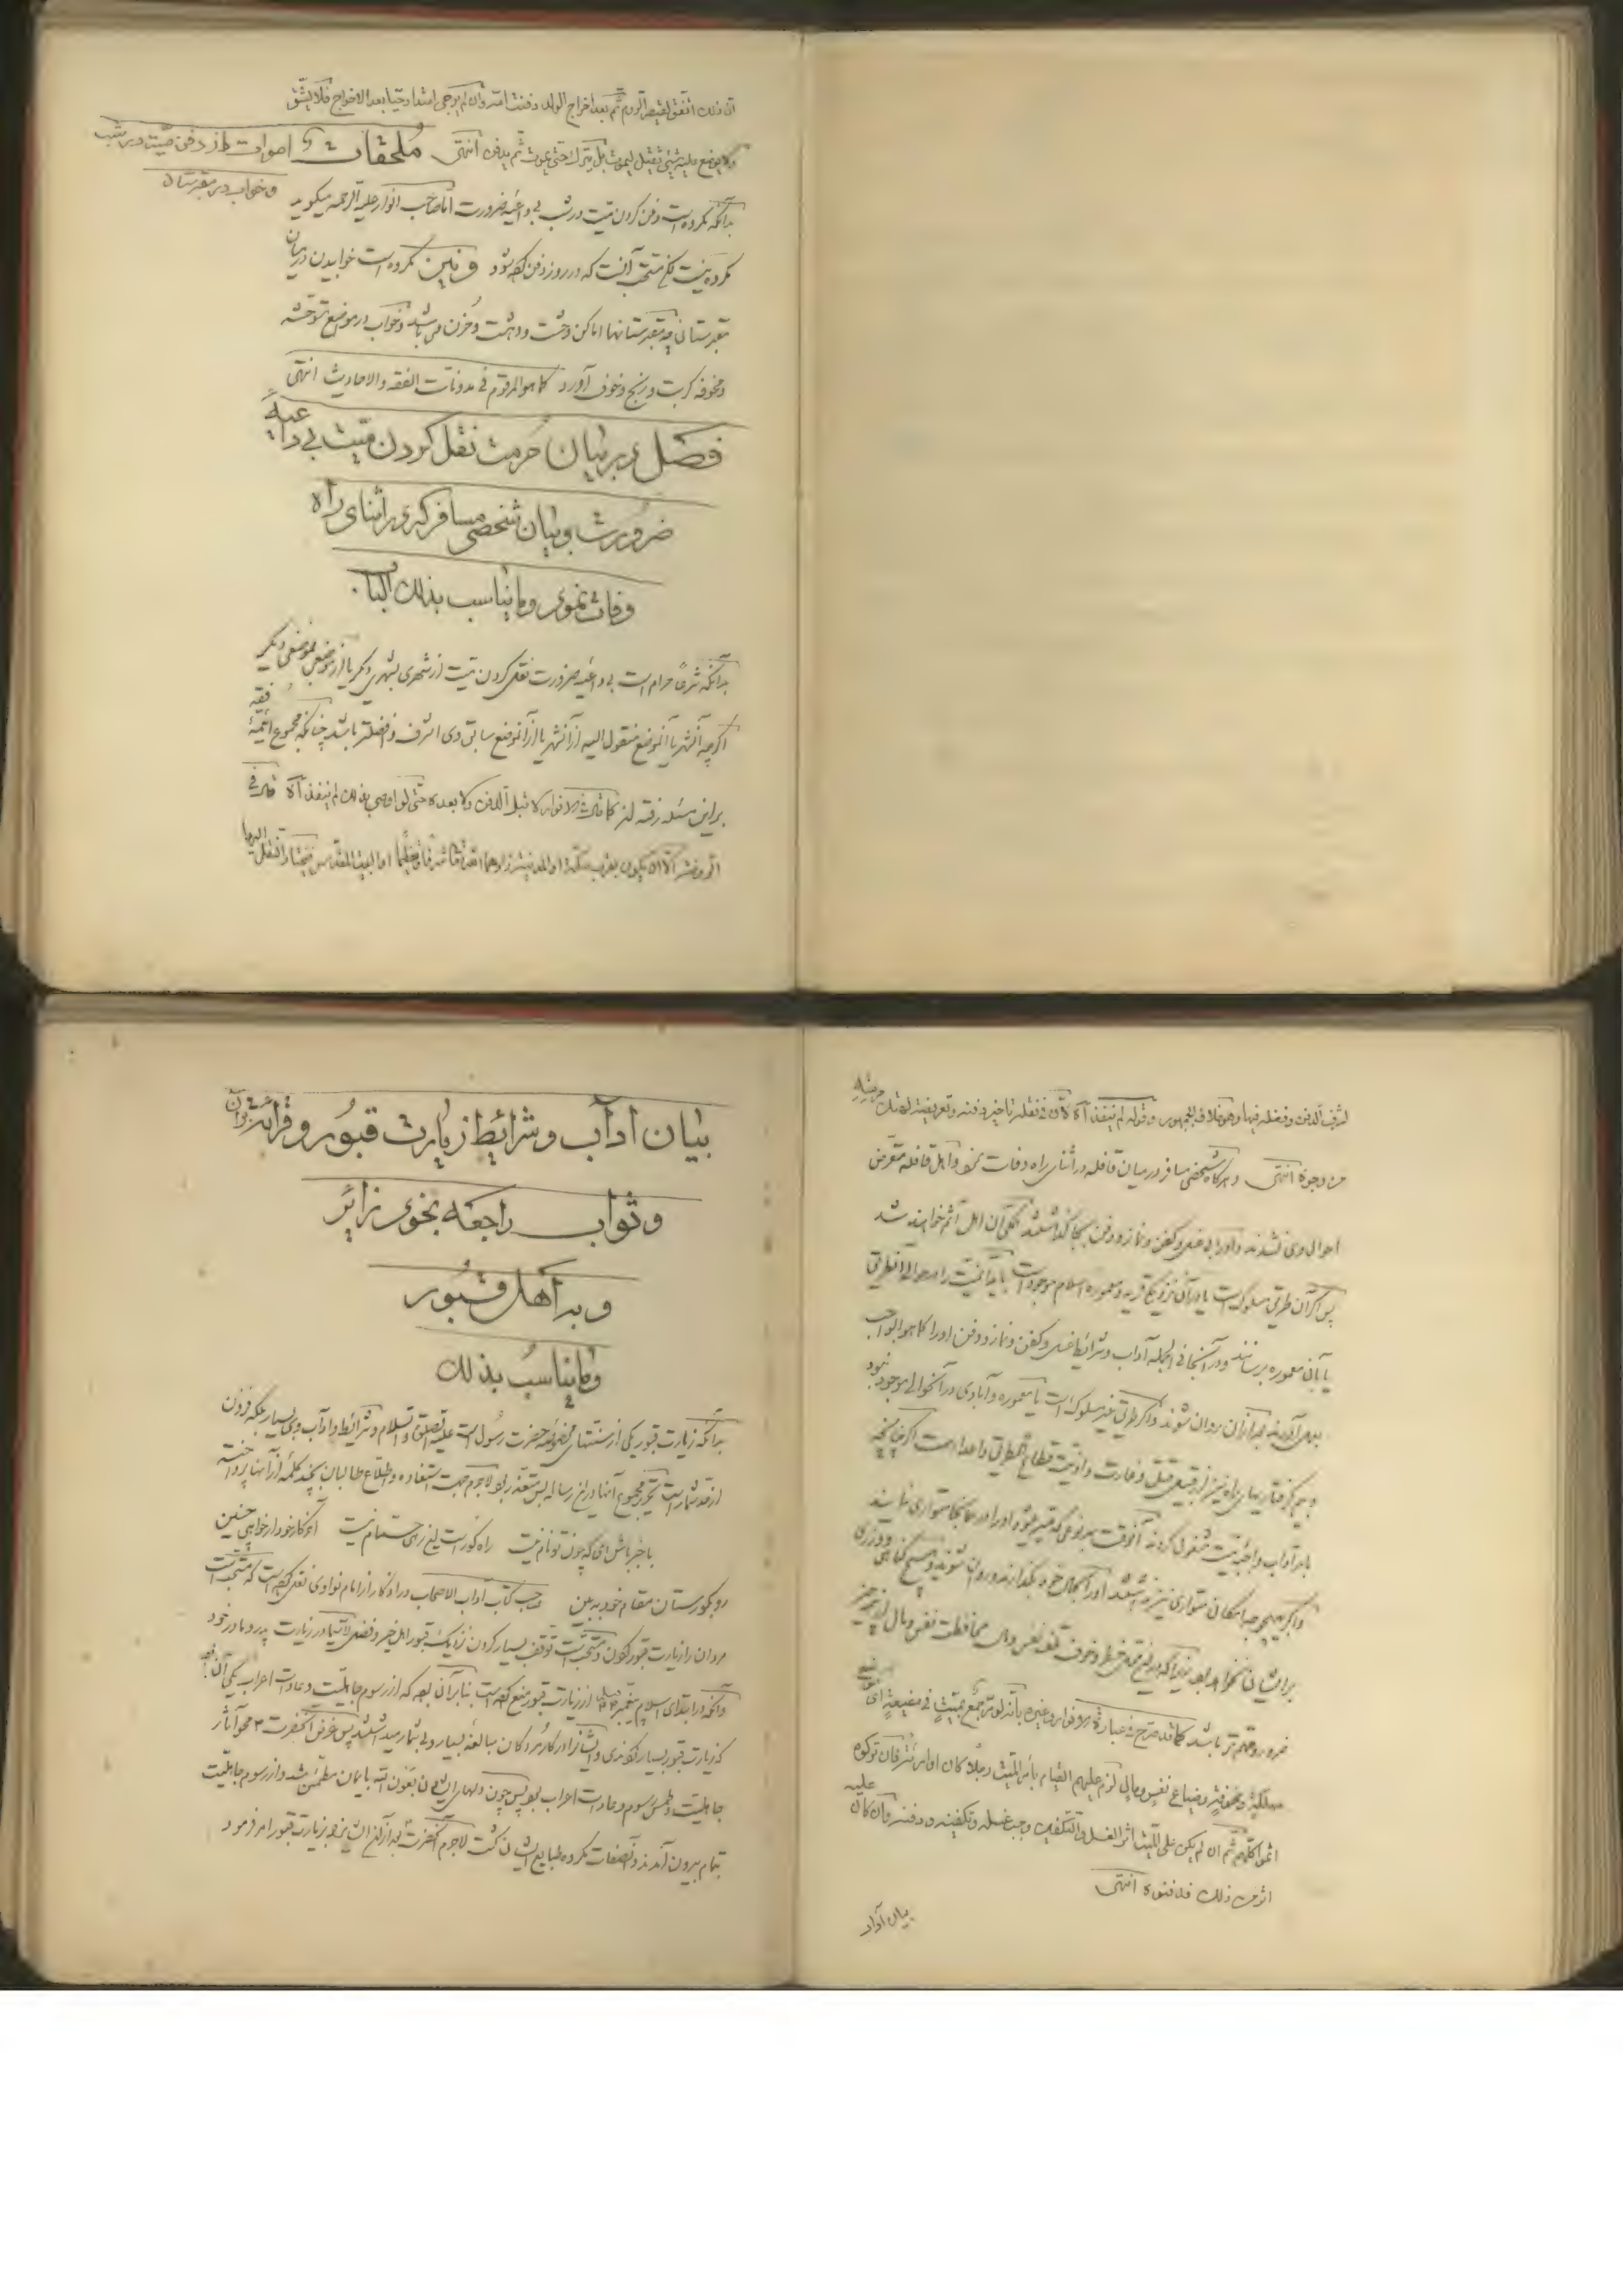 ان ذلك اتفق لقيصر الروم ثم بعد اخراج الولد دفنت امه وان لم يرجى امتداد حياته بعد الاخراج فلا يشق
ولا يوضع عليه شيء ثقيل ليموت بل يترك حتى يموت ثم يدفن انتهى ملحقات اموات از دفن میت در شب
و خواب در مقبرستان
بدانکه مکروه است دفن کردن میت در شب بی داعیه ضرورت اما صاحب انوار علیه الرحمه میگوید
مکروه نیست لکن مستحب آنست که در روز دفن کرده شود و نیز مکروه است خوابیدن در میان
مقبرستانی چه مقبرستانها اماکن وحشت و دهشت و حزن می باشد و خواب در مواضع متوحشه
و مخوفه کربت و رنج و خوف آورد كما هو المرقوم في مدونات الفقه والاحاديث انتهى
فصل در بیان حرمت نقل کردن میت بی داعیه
ضرورت و بیان شخصی مسافر که در اثنای راه
وفات نمود وما يناسب بذلك الباب
بدانکه شرعا حرام است بی داعیه ضرورت نقل کردن میت از شهری بشهری دیگر یا از موضعی بموضعی دیگر
اگرچه آنشهر یا آنموضع منقول الیه از آنشهر یا از آنموضع سابق وی اشرف و افضلتر باشد چنانکه مجموع ائمه فقه
بر این مسئله رفته اند كما قال في الانوار لا قبل الدفن ولا بعده حتى لو اوصى بذلك لم ينفذ آه قال في
الروض الا ان يكون بقرب مكة او المدينة زادهما الله تعالى شرفا وتعظيما او البيت المقدس فيختار النقل اليها
لشرف الدفن وفضله فيها وهو خلاف الجمهور وقوله لم ينفذ آه لان في نقله تأخير دفنه وتعريضه لهتك حرمته
من وجوه انتهى و هرگاه شخصی مسافر در میان قافله در اثنای راه وفات نمود و اهل قافله متعرض
احوال وی نشدند و اورا بی غسل و کفن و نماز و دفن بجا گذاشتند همگی آن اهل آثم خواهند شد
پس اگر آن طریق مسلوک است یا در آن نزدیکی قریه و معموره اسلام موجود است باید میت را در حوالی آنطریق
یا بآن معموره برسانند و در آنجا فی الجمله آداب و شرائط غسل و کفن و نماز و دفن اورا كما هو الواجب
بعمل آورده بعد از آن روان شوند و اگر طریق غیر مسلوک است یا معموره و آبادی در آنحوالی موجود نبود
و هم گرفتاریهای راه نیز از قبیل قتل و غارت و اذیت قطاع الطریق و اعدا هست اگر چنانچه
بامر آداب واجبه میت مشغول گردند آنوقت بهر نوعی که میسر شود اورا در همانجا متواری نمایند
و اگر بهیچوجه امکان متواری نیز نباشد اورا بحال خود بگذارند و روان شوند و هیچ گناهی و وزری
بر ایشان نخواهد بود زیرا که در این محل خطر و خوف تلف نفس و مال محافظت نفس و مال از هر چیز
ضرورو مهم تر باشد كما قد صرح في عبارة الروض وغيره بانه لو مر جمع بميت في مضيعة اي موضع
مهلكة ومخوفة وضياع نفس ومال لزم عليهم القيام بأمر الميت رجلا كان او امرءة فان تركوه
اثموا كلهم ثم ان لم يكن على الميت اثر الغسل والتكفين وجب غسله وتكفينه ودفنه وان كان عليه
اثر من ذلك فدفنوه انتهى
بیان آداب
بیان آداب و شرائط زیارت قبور و قرائت قرآن
و ثواب راجعه بخود زائر
و بر اهل قبور
وما يناسب بذلك
بدانکه زیارت قبور یکی از سنتهای حضرت رسول است علیه الصلوة والسلام و شرائط و آداب وی بسیار بلکه فزون
از حد شمار است تحریر مجموع آنها در این رساله بس متعذر بود لاجرم جهت استفاده و اطلاع طالبان بچند کلمه از آنها پرداخته
با خبر باش ای که چون تو نام نیست راه گور است این ره حمام نیست آخر کار خود ار خواهی چنین
رو بگورستان مقام خود ببین صاحب کتاب آداب الاصحاب در اذکار از امام نواوی نقل کرده است که مستحب است
مردان را زیارت قبور کردن و مستحب است توقف بسیار کردن نزدیک قبور اهل خیر و فضل لاسیما در زیارت پدر و مادر خود
و آنکه در ابتدای اسلام پیغمبر از زیارت قبور منع کرده است بنابر آن بود که از رسوم جاهلیت و عادات اعراب یکی آن بود
که زیارت قبور بسیار کردندی و ایشانرا در کار مردگان مبالغه بسیار و بی شمار میداشتند پس غرض آنحضرت محو آثار
جاهلیت و طمس رسوم و عادات اعراب بود پس چون دلهای ایشان بعون الله بایمان مطمئن شد و از رسوم جاهلیت
بتمام بیرون آمدند و آنصفات مکروه طبایع ایشان گشت لاجرم آنحضرت بعد از آن ایشانرا بزیارت قبور امر فرمود